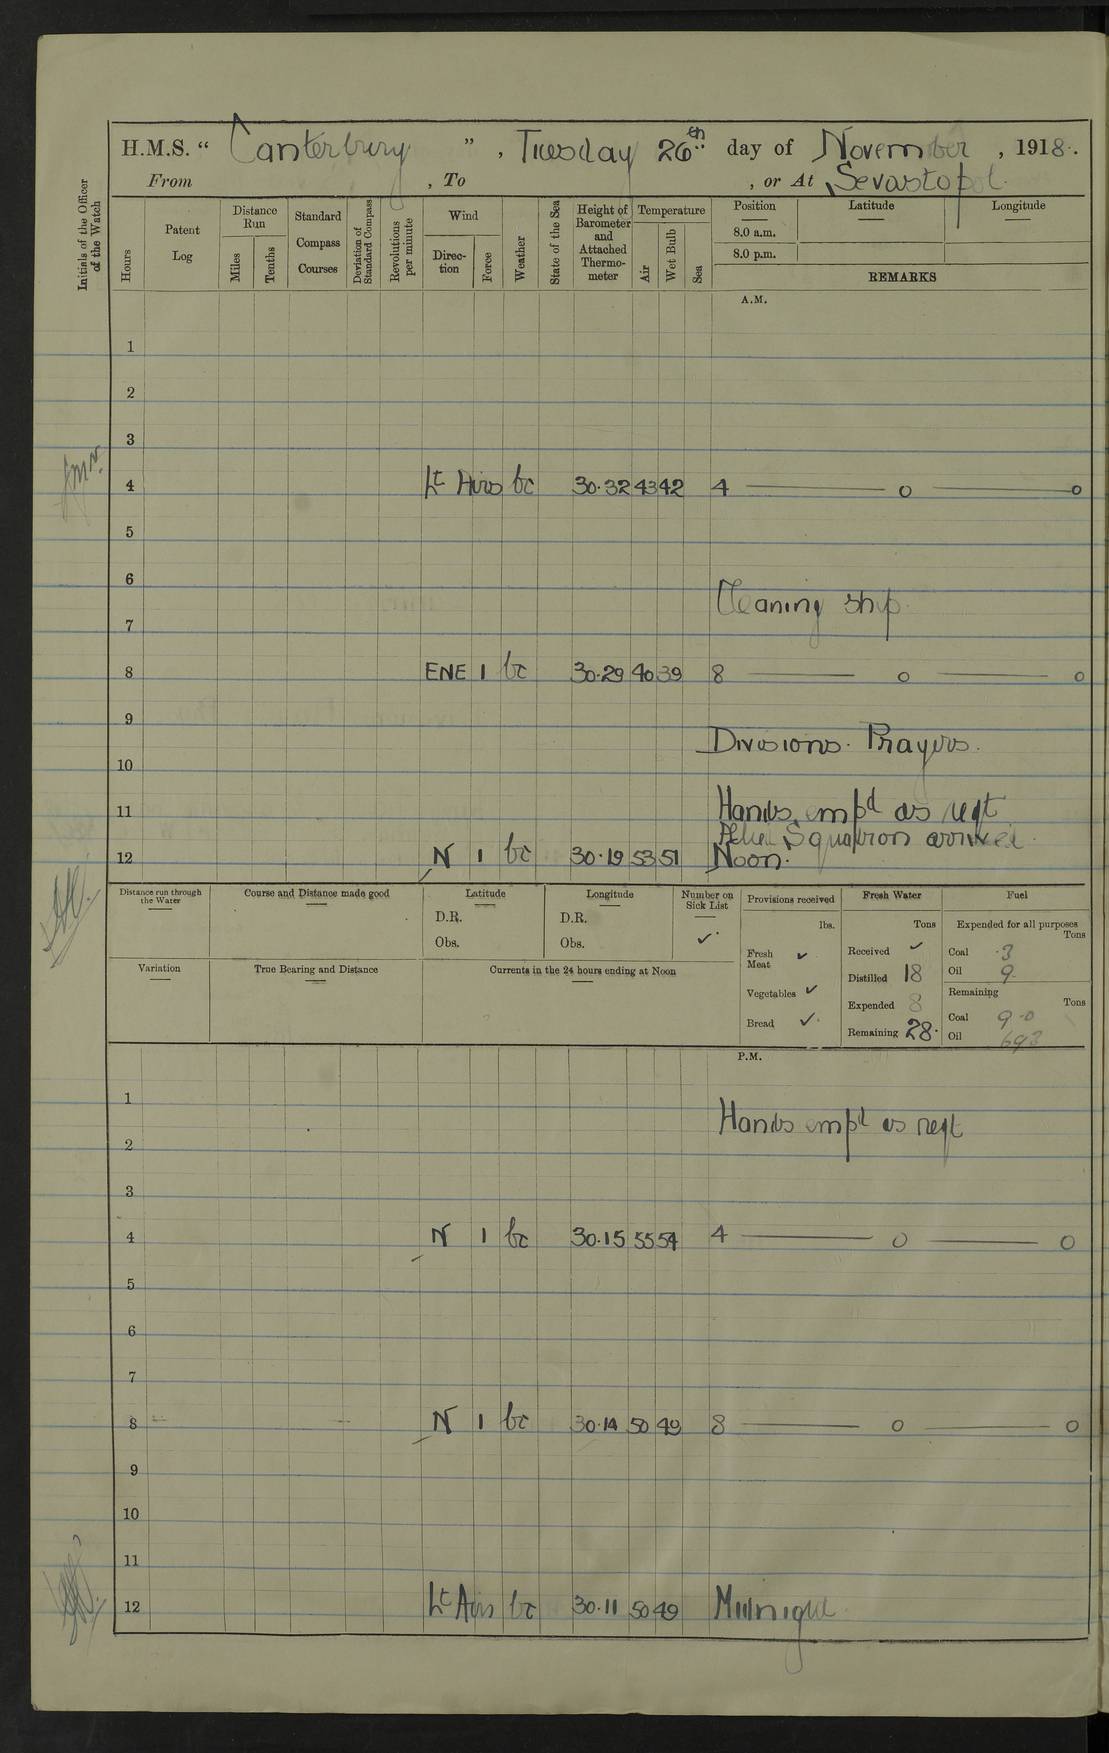 H.M.S. “ Canterbury ” , Tuesday 26th day of November , 1918.
From , To , or At Sevastopol
Initials of the Officer of the Watch
Hours
Patent Log
Distance Run
Miles
Tenths
Standard Compass Courses
Deviation of Standard Compass
Revolutions per minute
Wind
Direction
Force
Weather
State of the Sea
Height of Barometer and Attached Thermometer
Temperature
Air
Wet Bulb
Sea
Position Latitude Longitude
8.0 a.m.
8.0 p.m.
REMARKS
A.M.
1
2
3
4 Lt Airs bc 30.32 43 42 4 — o — o
5
6
Cleaning ship.
7
8 ENE 1 bc 30.29 40 39 8 — o — o
9
Divisions. Prayers.
10
11 Hands empd as reqt
Squadron arrived
12 N 1 bc 30.19 53 51 Noon.
Distance run through the Water
Course and Distance made good
Latitude
D.R.
Obs.
Longitude
D.R.
Obs.
Number on Sick List
✓
Provisions received
lbs.
Fresh Meat ✓
Vegetables ✓
Bread ✓
Fresh Water
Tons
Received ✓
Distilled 18
Expended 8
Remaining 28.
Fuel
Expended for all purposes
Tons
Coal .3
Oil 9
Remaining
Tons
Coal 9.0
Oil 693
Variation
True Bearing and Distance
Currents in the 24 hours ending at Noon
P.M.
1
Hands empd as reqt
2
3
4 N 1 bc 30.15 55 54 4 — o — o
5
6
7
8 N 1 bc 30.14 50 49 8 — o — o
9
10
11
12 Lt Airs bc 30.11 50 49 Midnight